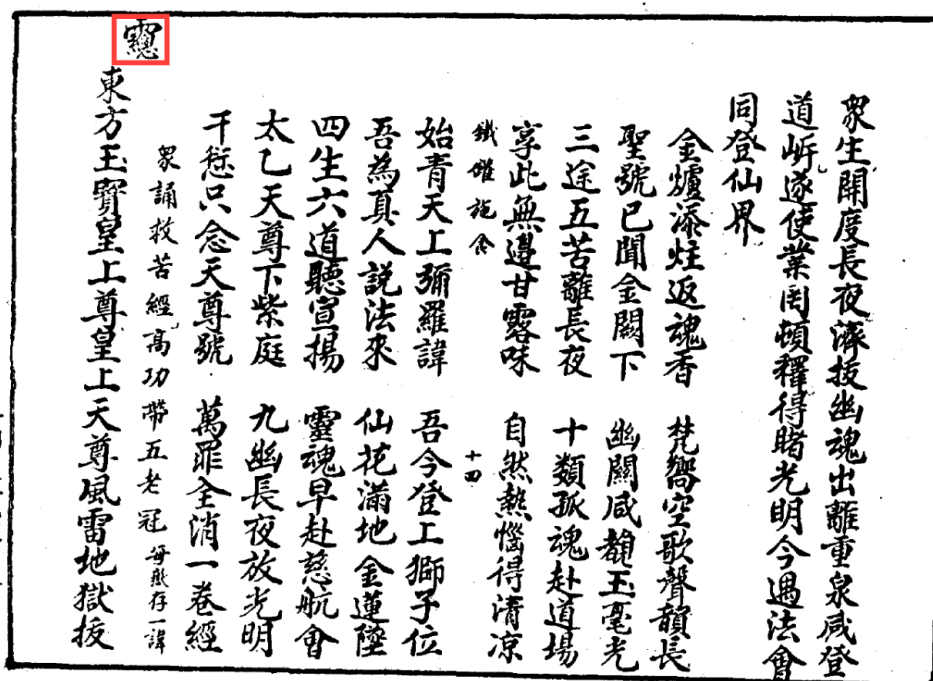 眾生開度長夜濟拔幽魂出離重泉咸登
道岍遂使業罔頓釋得睹光明今遇法會
同登仙界
金爐添炷返魂香 梵嚮空歌聲韻長
聖號已聞金闕下 幽關咸覩玉毫光
三途五苦離長夜 十類孤魂赴道場
享此無邊甘露味 自然熱惱得清凉
鐵 施食 十四
始青天上彌羅諱 吾今登上獅子位
吾為真人說法來 仙花滿地金蓮墜
四生六道聽宣揚 靈魂早赴慈航會
太乙天尊下紫庭 九幽長夜放光明
千愆只念天尊號 萬罪全消一卷經
眾誦救苦經高功帶五老冠 每獄存一諱
東方玉寶皇上尊皇上天尊風雷地獄拔